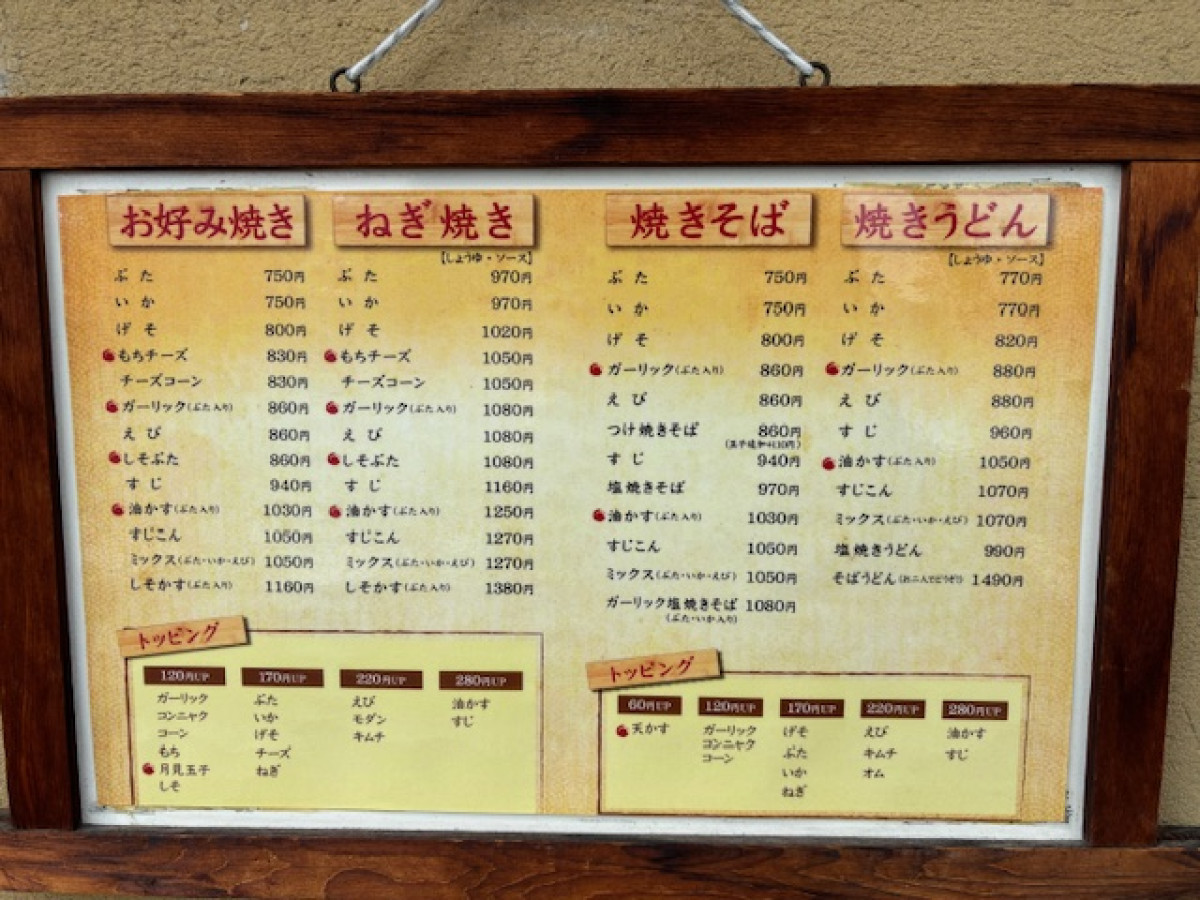 お好み焼き
ぶた 750円
いか 750円
げそ 800円
もちチーズ 830円
チーズコーン 830円
ガーリック(ぶた入り) 860円
えび 860円
しそぶた 860円
すじ 940円
油かす(ぶた入り) 1030円
すじこん 1050円
ミックス(ぶた・いか・えび) 1050円
しそかす(ぶた入り) 1160円
ねぎ焼き
【しょうゆ・ソース】
ぶた 970円
いか 970円
げそ 1020円
もちチーズ 1050円
チーズコーン 1050円
ガーリック(ぶた入り) 1080円
えび 1080円
しそぶた 1080円
すじ 1160円
油かす(ぶた入り) 1250円
すじこん 1270円
ミックス(ぶた・いか・えび) 1270円
しそかす(ぶた入り) 1380円
トッピング
120円UP
ガーリック
コンニャク
コーン
もち
月見玉子
しそ
170円UP
ぶた
いか
げそ
チーズ
ねぎ
220円UP
えび
モダン
キムチ
280円UP
油かす
すじ
焼きそば
ぶた 750円
いか 750円
げそ 800円
ガーリック(ぶた入り) 860円
えび 860円
つけ焼きそば 860円
すじ 940円
塩焼きそば 970円
油かす(ぶた入り) 1030円
すじこん 1050円
ミックス(ぶた・いか・えび) 1050円
ガーリック塩焼きそば 1080円
(ぶた・いか入り)
焼きうどん
【しょうゆ・ソース】
ぶた 770円
いか 770円
げそ 820円
ガーリック(ぶた入り) 880円
えび 880円
すじ 960円
油かす(ぶた入り) 1050円
すじこん 1070円
ミックス(ぶた・いか・えび) 1070円
塩焼きうどん 990円
そばうどん(お二人でどうぞ!) 1490円
トッピング
60円UP
天かす
120円UP
ガーリック
コンニャク
コーン
170円UP
げそ
ぶた
いか
ねぎ
220円UP
えび
キムチ
オム
280円UP
油かす
すじ